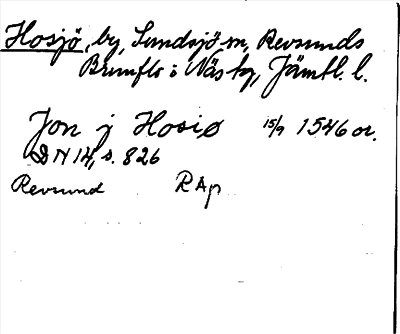 Hosjö, by, Sundsjö sn, Revsunds
Brunflo o Näs tg, Jämtl. l.
Jon j Hosiø 15/9 1546 or.
DN 14, s. 826
Revsund RAp